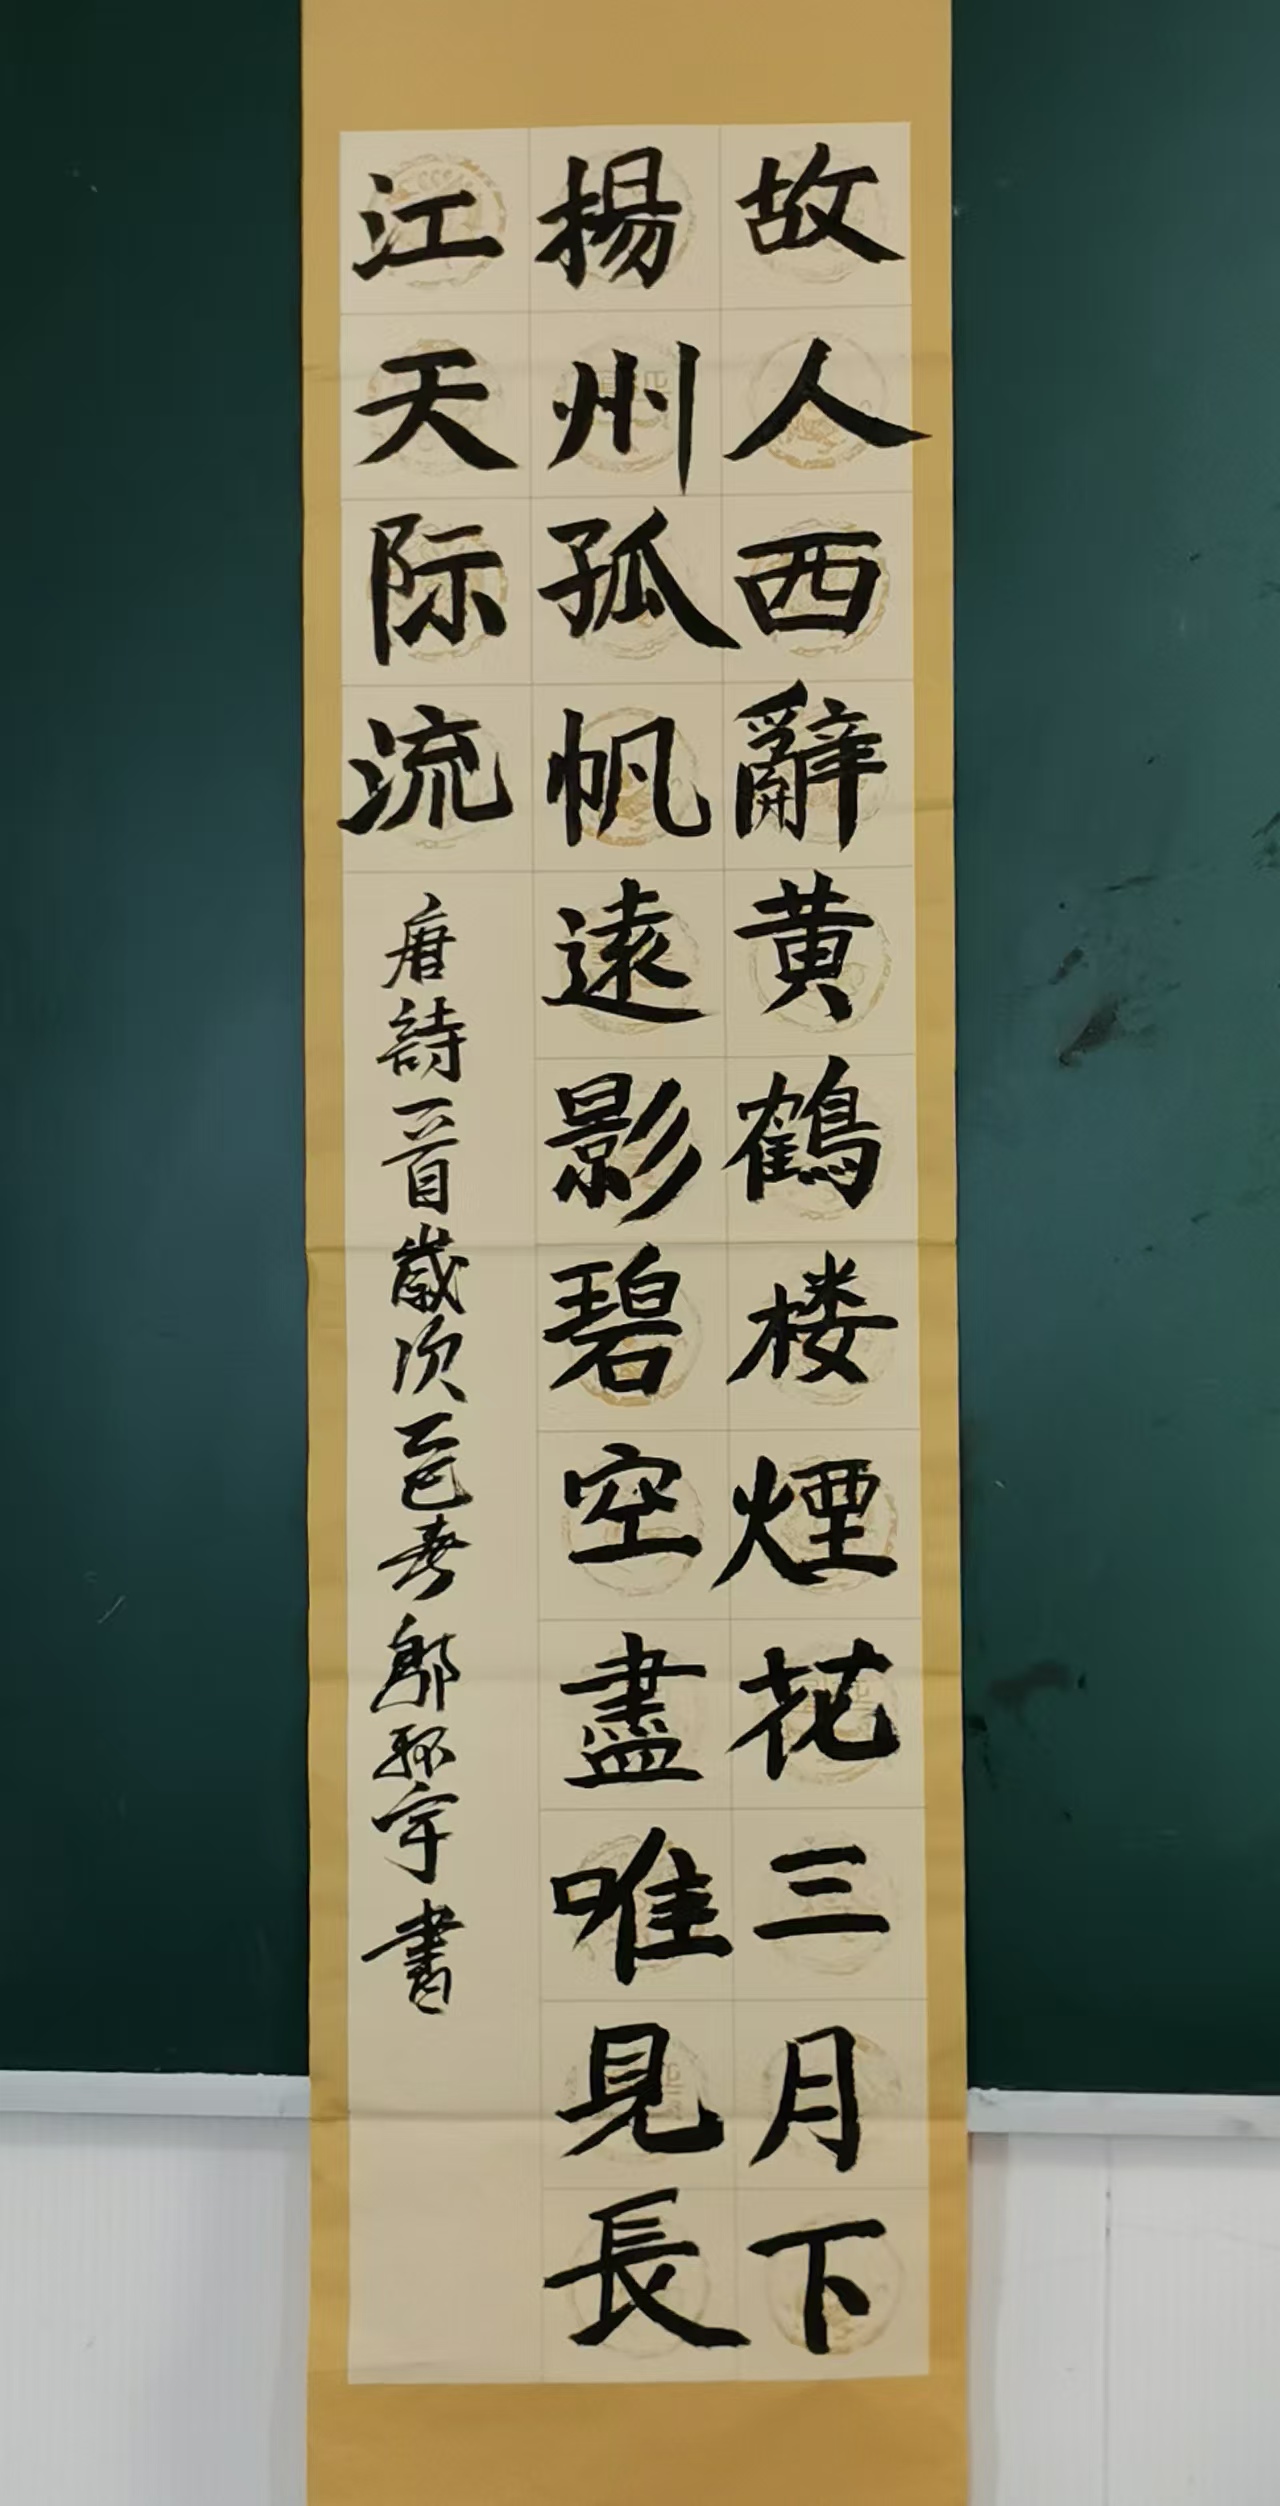 故人西辭黄鶴楼煙花三月下
揚州孤帆遠影碧空盡唯見長
江天际流
唐詩一首歲次乙巳春鄔弥宇書